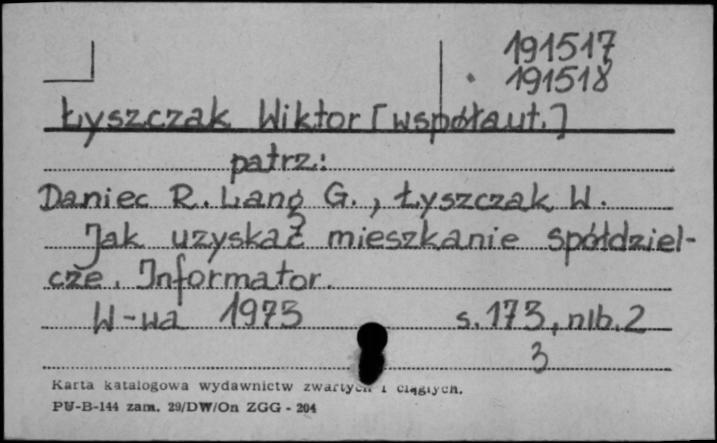 191517
191518
Łyszczak Wiktor [współaut.]
patrz:
Daniec R. Lang G., Łyszczak W.
Jak uzyskać mieszkanie spółdziel-
cze. Informator.
W-wa 1973 s. 173, nlb. 2
3
Karta katalogowa wydawnictw zwartych i ciągłych.
PU-B-144 zam. 29/DW/On ZGG - 204